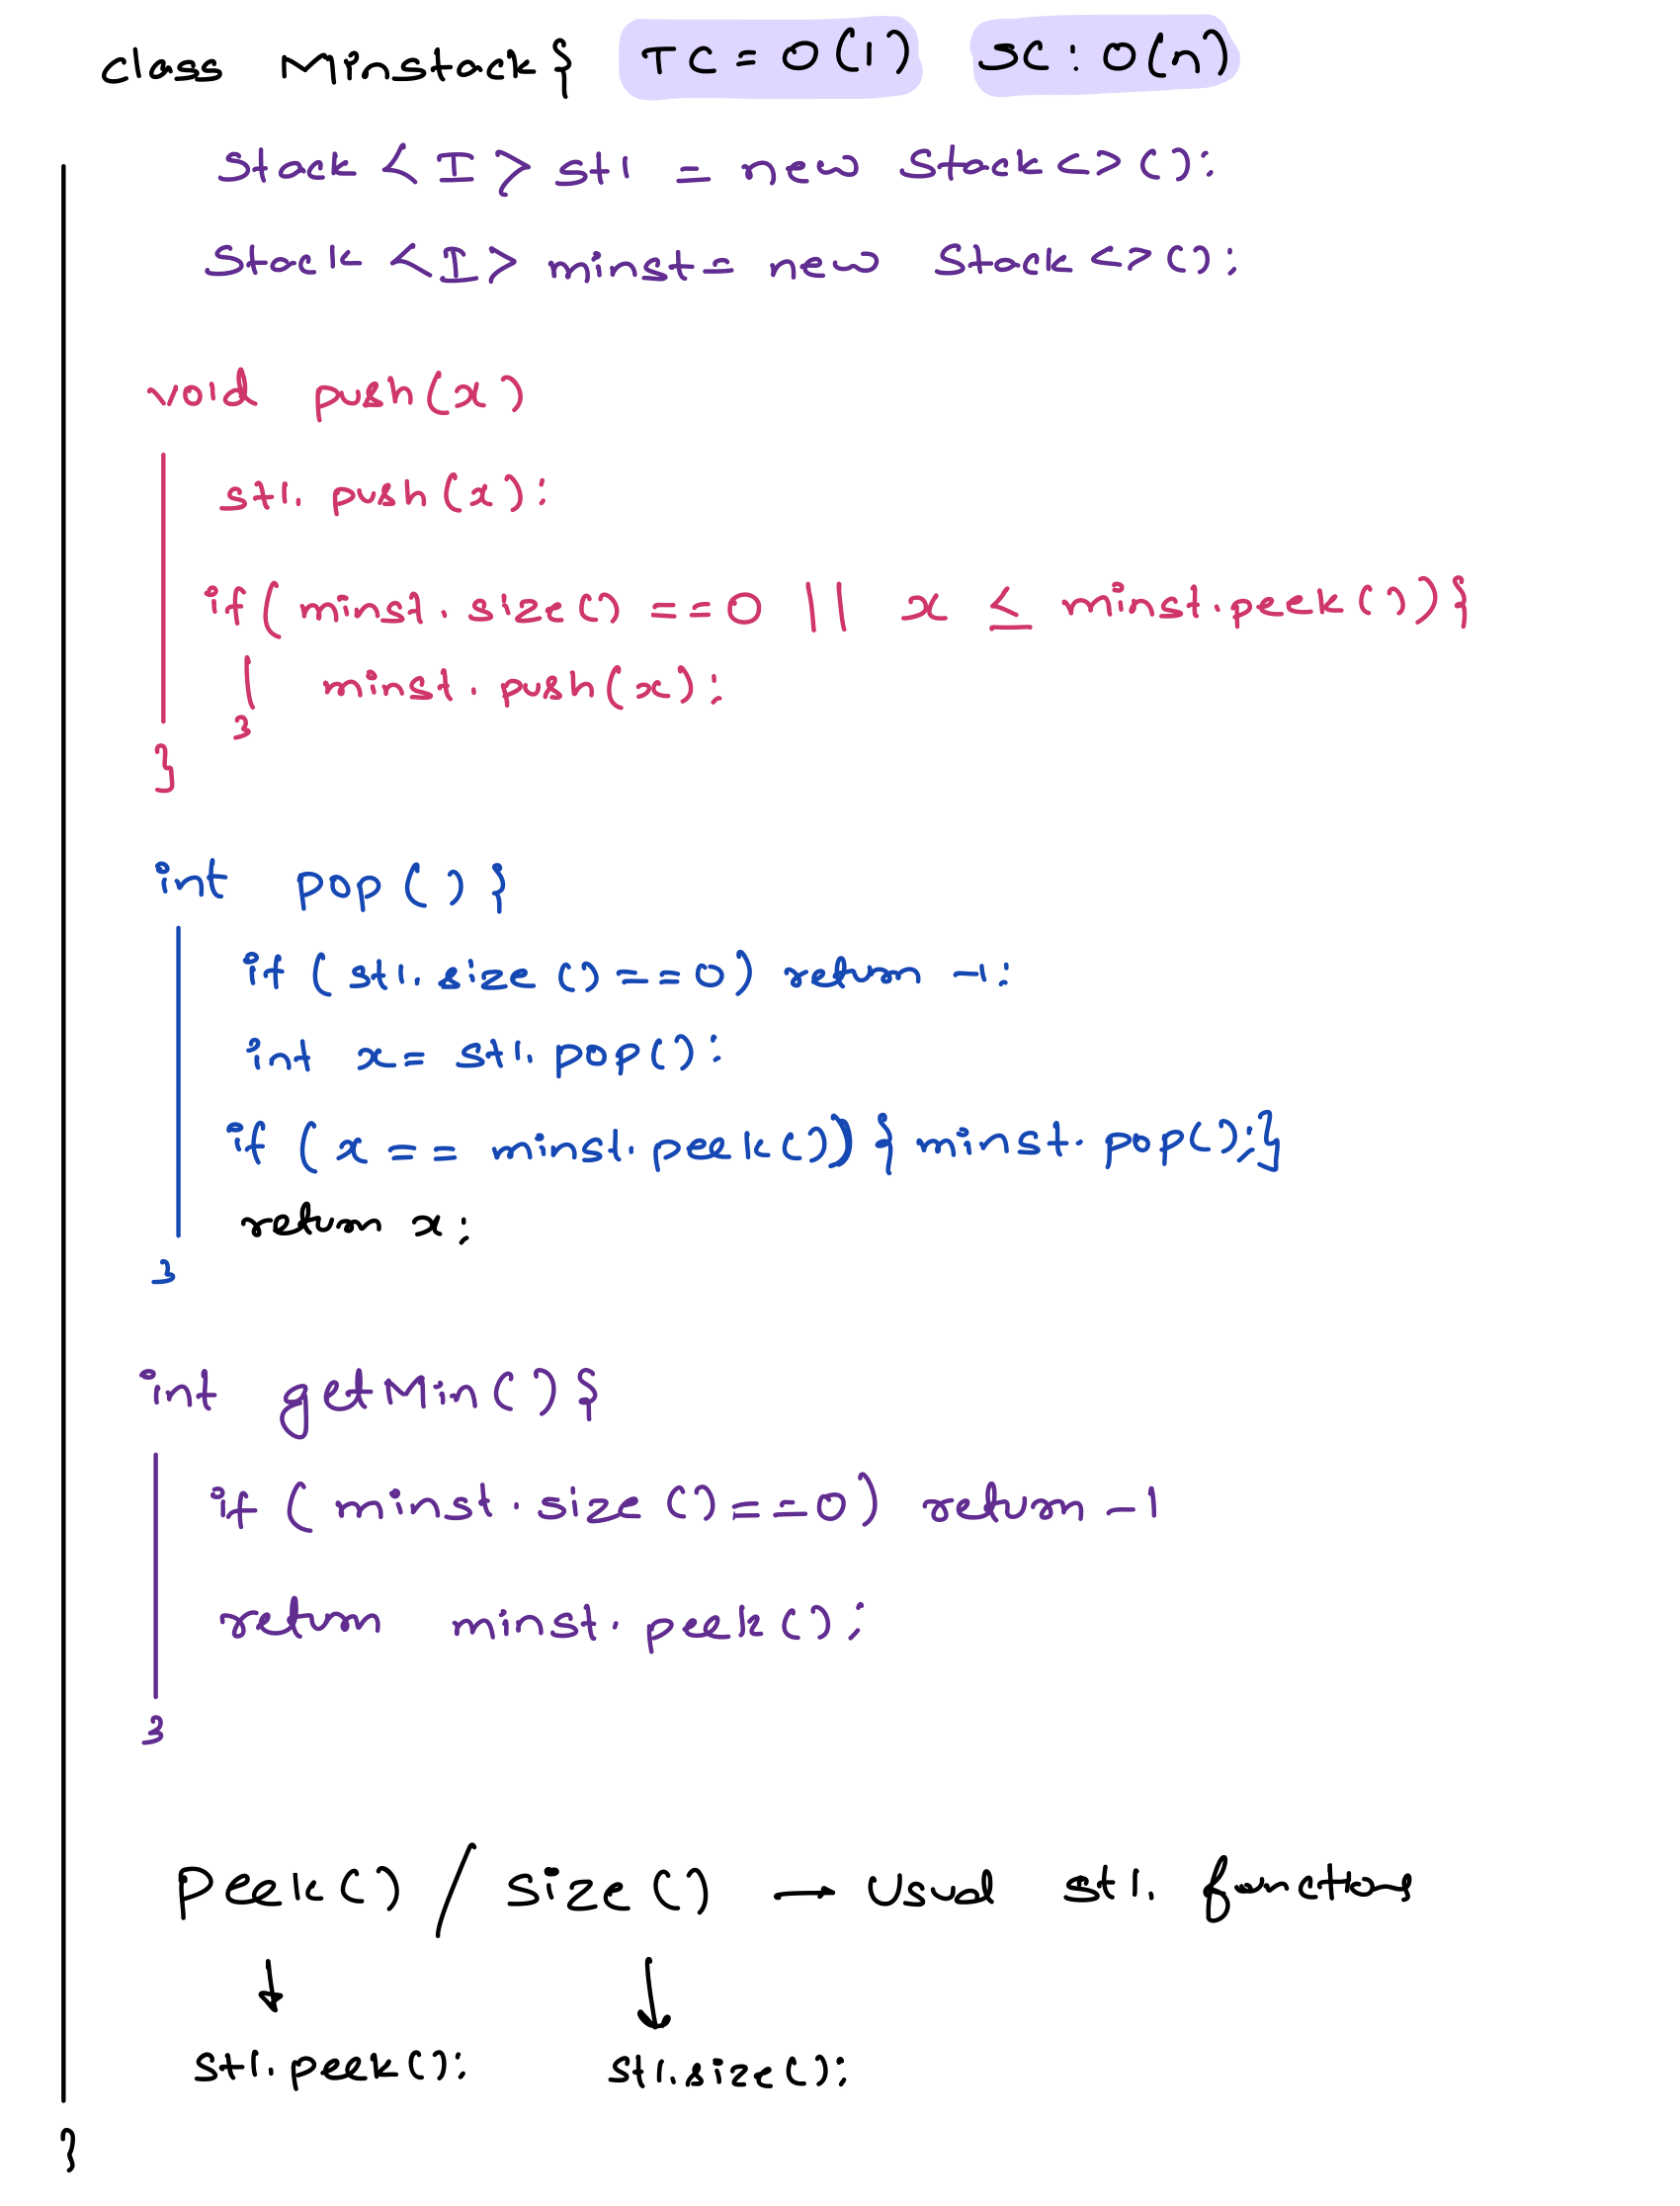 class Minstack{ TC = O(1) SC: O(n)
Stack <I> st1 = new Stack<>();
Stack <I> minst = new Stack<>();
void push(x)
st1.push(x);
if( minst.size() ==0 || x ≤ minst.peek()){
minst.push(x);
}
}
int pop(){
if( st1.size()==0) return -1;
int x= st1.pop();
if ( x == minst.peek()){ minst.pop();}
return x;
}
int getMin(){
if ( minst.size()==0) return -1
return minst.peek();
}
Peek() / size() → Usual st1. functions
↓ ↓
st1.peek(); st1.size();
}